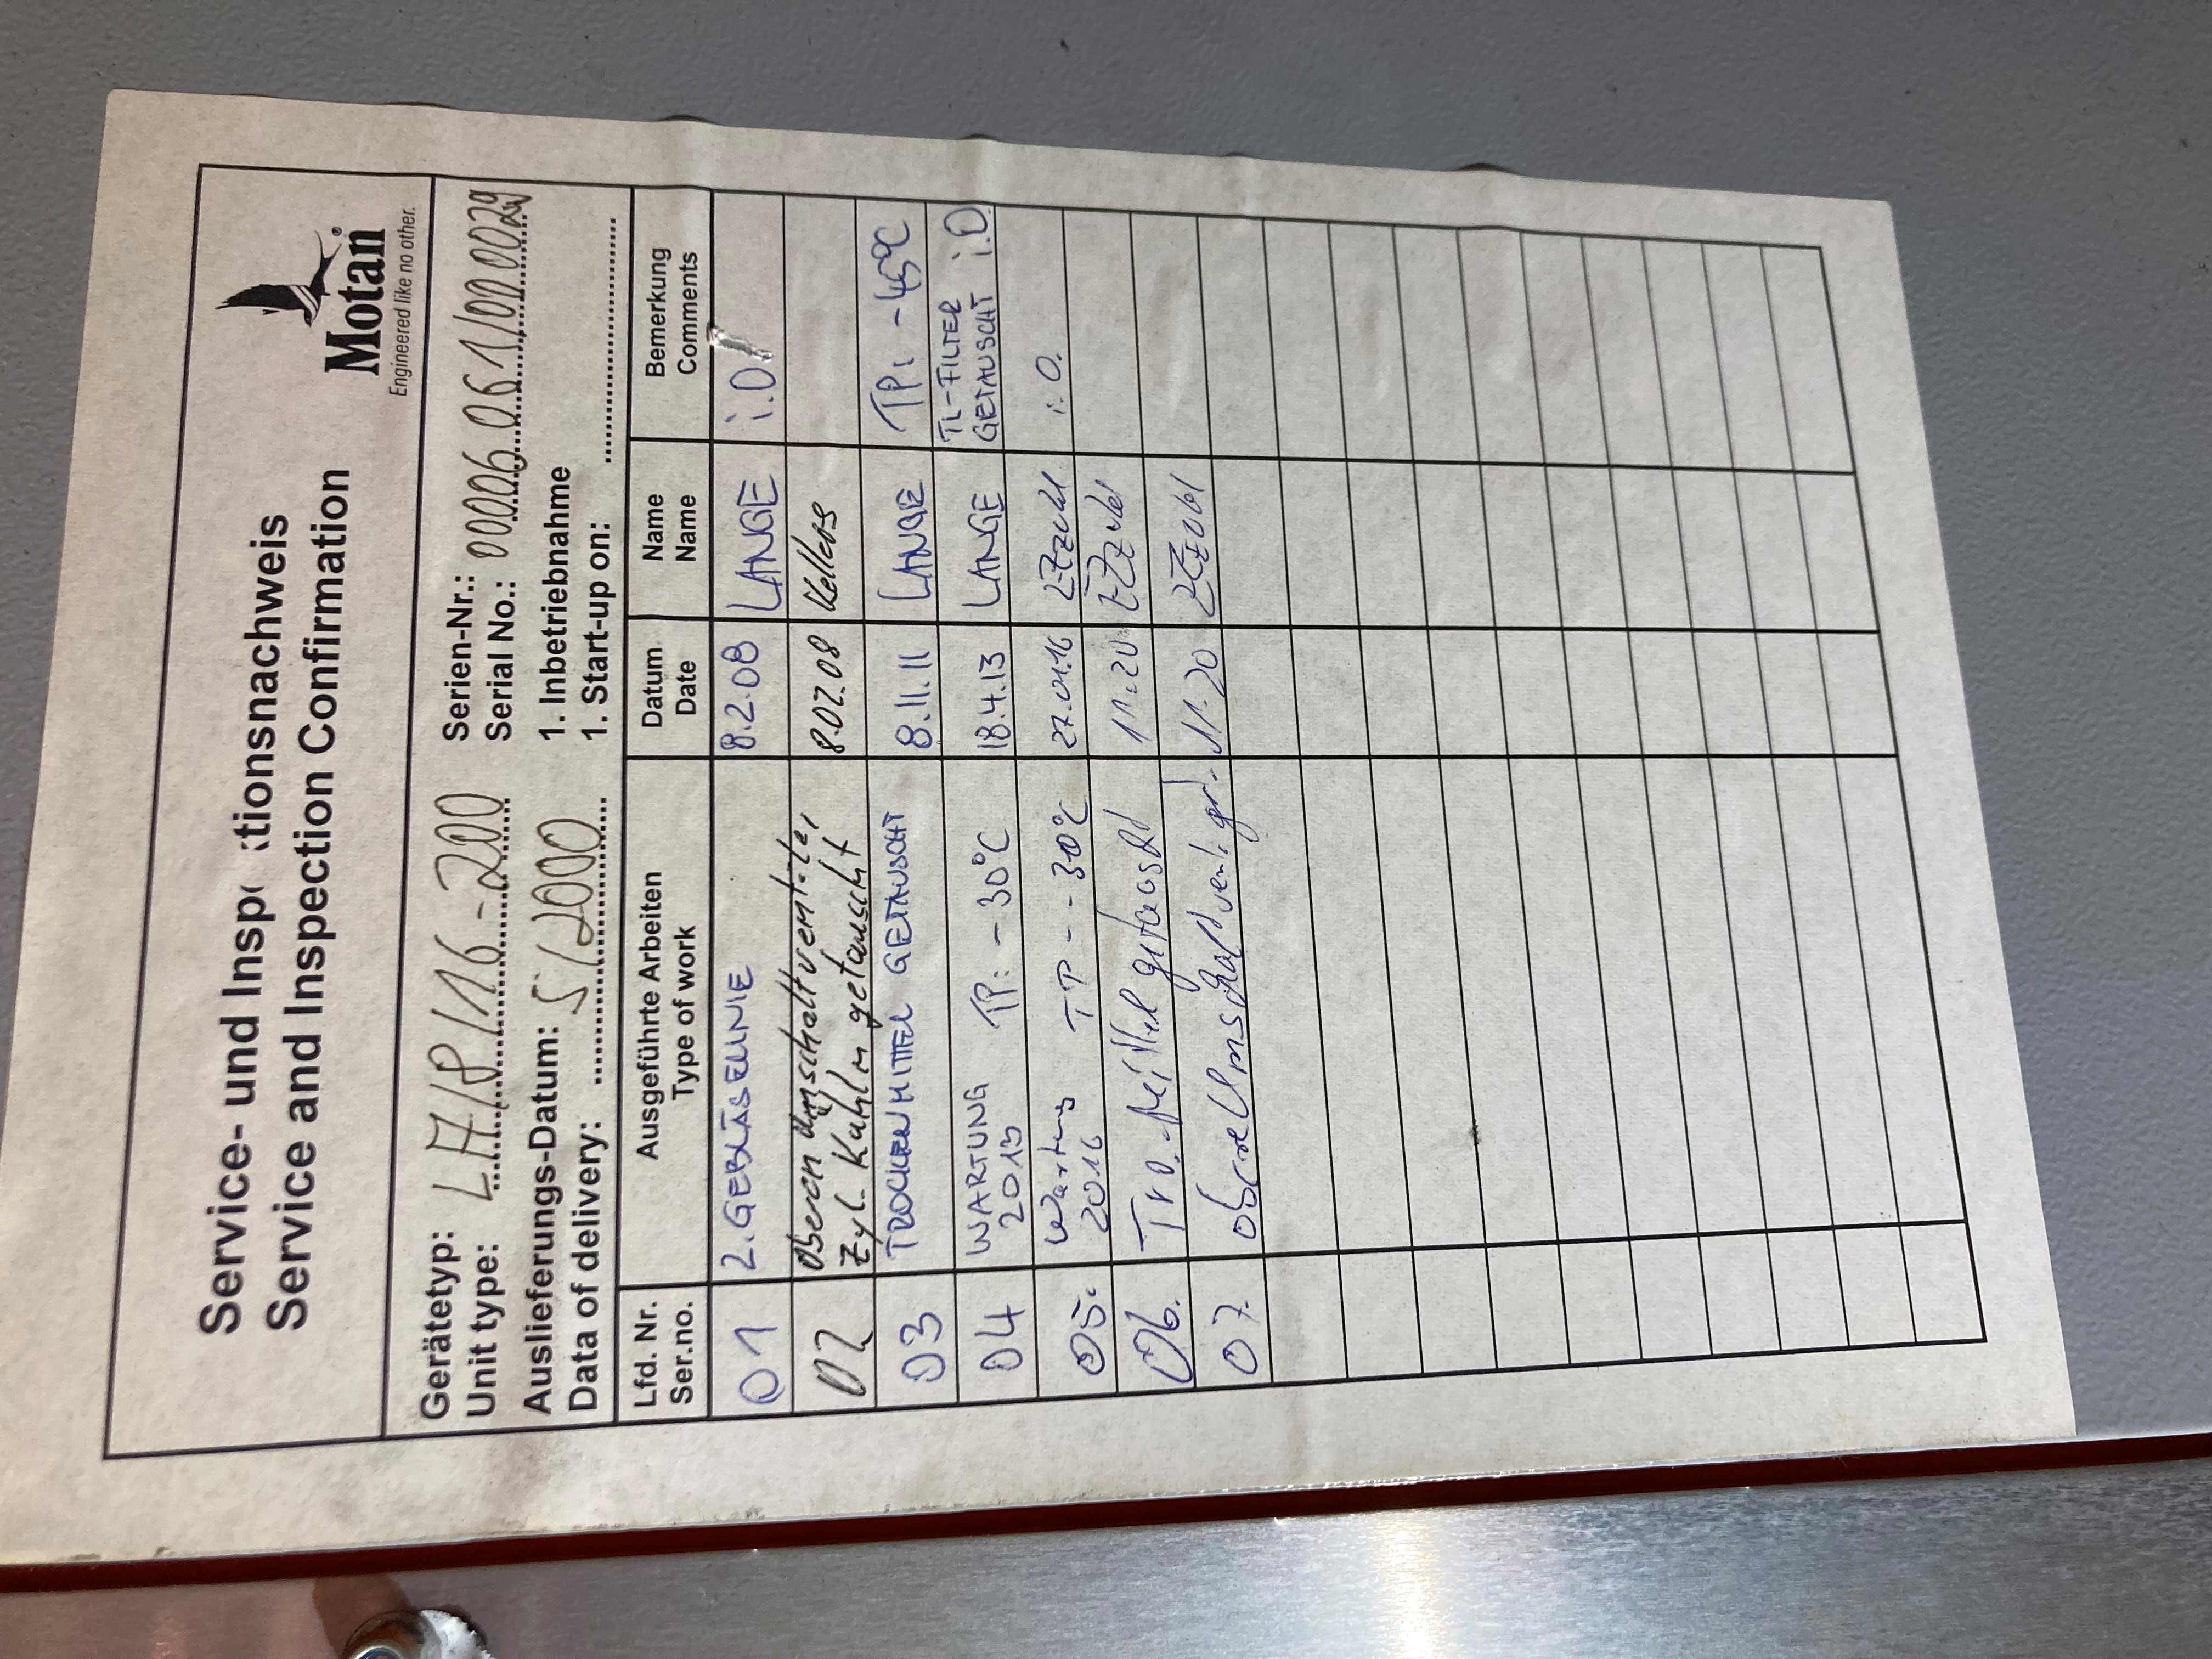 Service- und Insp tionsnachweis
Service and Inspection Confirmation
Motan®
Engineered like no other.
Gerätetyp:
Unit type:
Serien-Nr.:
Serial No.:
Auslieferungs-Datum:
Data of delivery: 5/2000
1. Inbetriebnahme
1. Start-up on:
Lfd. Nr. Ausgeführte Arbeiten Datum Name Bemerkung
Ser.no. Type of work Date Name Comments
01 2. GEBLÄSELINIE 8.2.08 LANGE i.O.
02 Oberen Umschaltventiler 8.02.08
Zyl. Kahlen getauscht
03 TROCKENMITTEL GETAUSCHT 8.11.11 LANGE TP: -45°C
04 WARTUNG TP: -30°C 18.4.13 LANGE TL-FILTER
2013 GETAUSCHT i.O.
05. Wartung TP -30°C 27.01.16 i.O.
2016
06. getauscht 11.20
07. obere Umschaltvent. 11.20